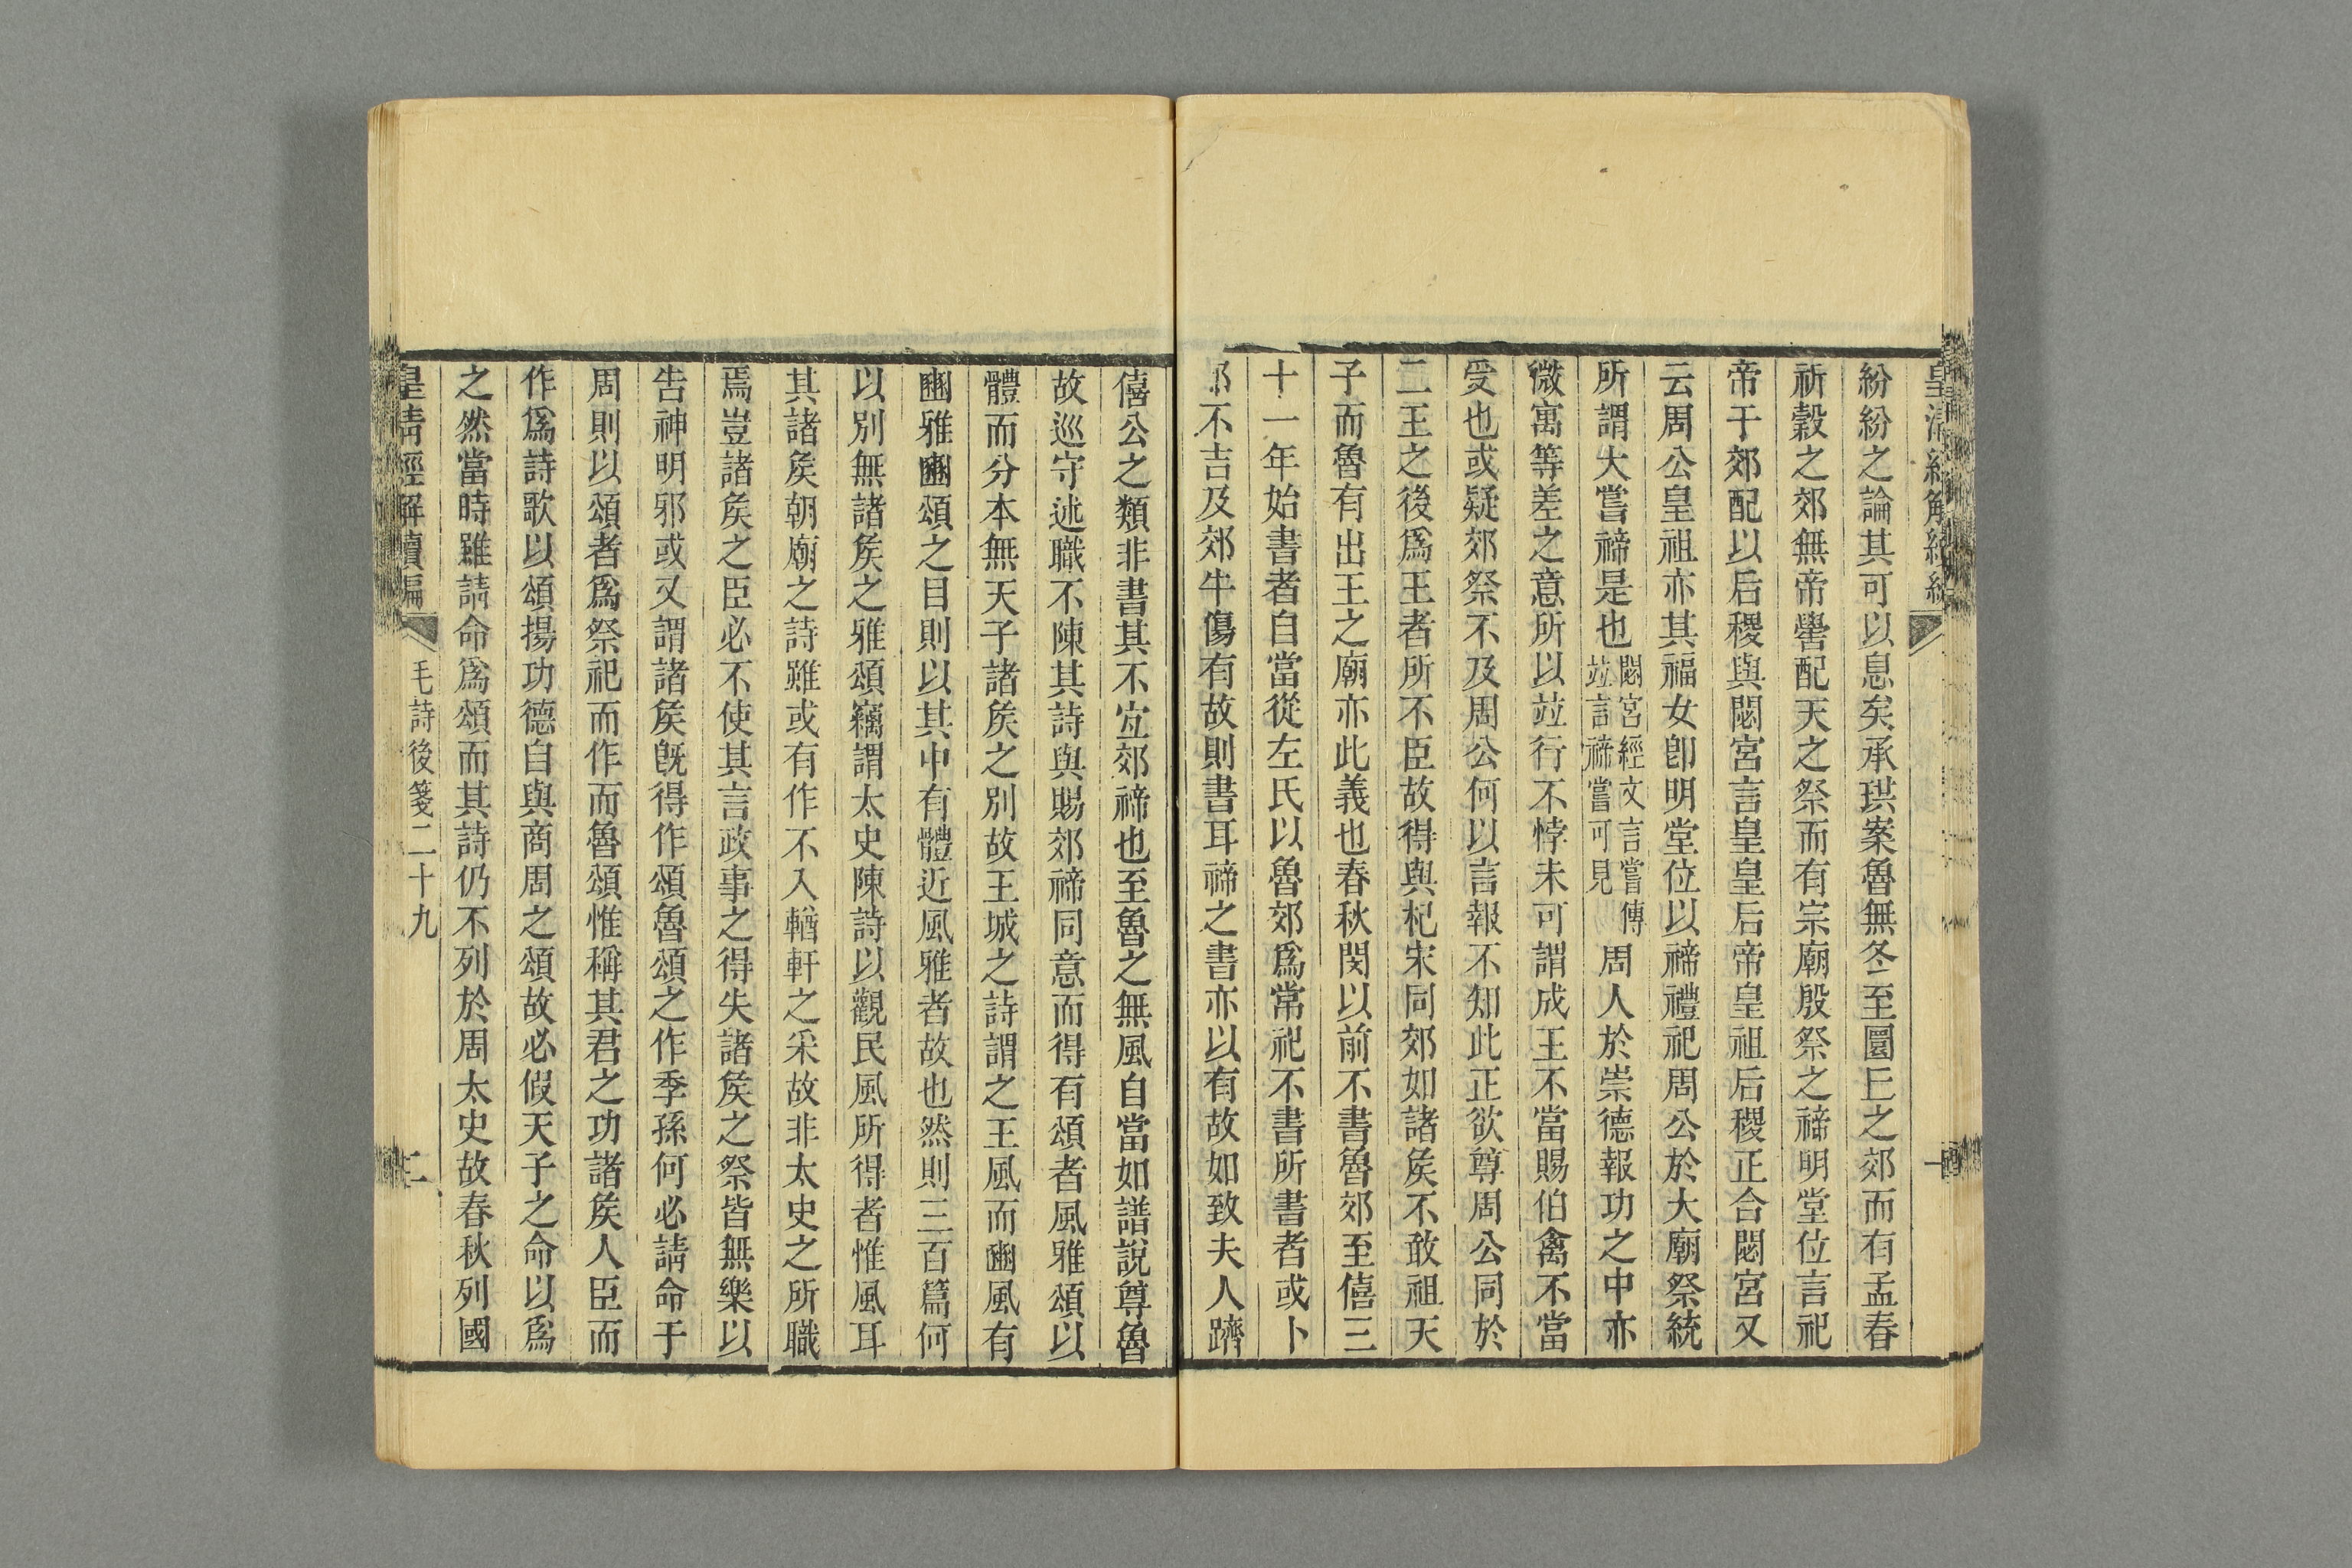 皇清經解續編
紛紛之論其可以息矣承珙案魯無冬至圜𠀉之郊而有孟春
祈穀之郊無帝嚳配天之祭而有宗廟殷祭之禘明堂位言祀
帝于郊配以后稷與閟宮言皇皇后帝皇祖后稷正合閟宮又
云周公皇祖亦其福女卽明堂位以禘禮祀周公於大廟祭統
所謂大嘗禘是也閟宮經文言嘗傳竝言禘嘗可見周人於崇德報功之中亦
微寓等差之意所以竝行不悖未可謂成王不當賜伯禽不當
受也或疑郊祭不及周公何以言報不知此正欲尊周公同於
二王之後爲王者所不臣故得與杞宋同郊如諸矦不敢祖天
子而魯有出王之廟亦此義也春秋閔以前不書魯郊至僖三
十一年始書者自當從左氏以魯郊爲常祀不書所書者或卜
郊不吉及郊牛傷有故則書耳禘之書亦以有故如致夫人躋
僖公之類非書其不宐郊禘也至魯之無風自當如譜說尊魯
故巡守述職不陳其詩與賜郊禘同意而得有頌者風雅頌以
體而分本無天子諸矦之別故王城之詩謂之王風而豳風有
豳雅豳頌之目則以其中有體近風雅者故也然則三百篇何
以別無諸矦之雅頌竊謂太史陳詩以觀民風所得者惟風耳
其諸矦朝廟之詩雖或有作不入輶軒之采故非太史之所職
焉豈諸矦之臣必不使其言政事之得失諸矦之祭皆無樂以
告神明邪或又謂諸矦旣得作頌魯頌之作季孫何必請命于
周則以頌者爲祭祀而作而魯頌惟稱其君之功諸矦人臣而
作爲詩歌以頌揚功德自與商周之頌故必假天子之命以爲
之然當時雖請命爲頌而其詩仍不列於周太史故春秋列國
皇清經解續編
毛詩後箋二十九
二